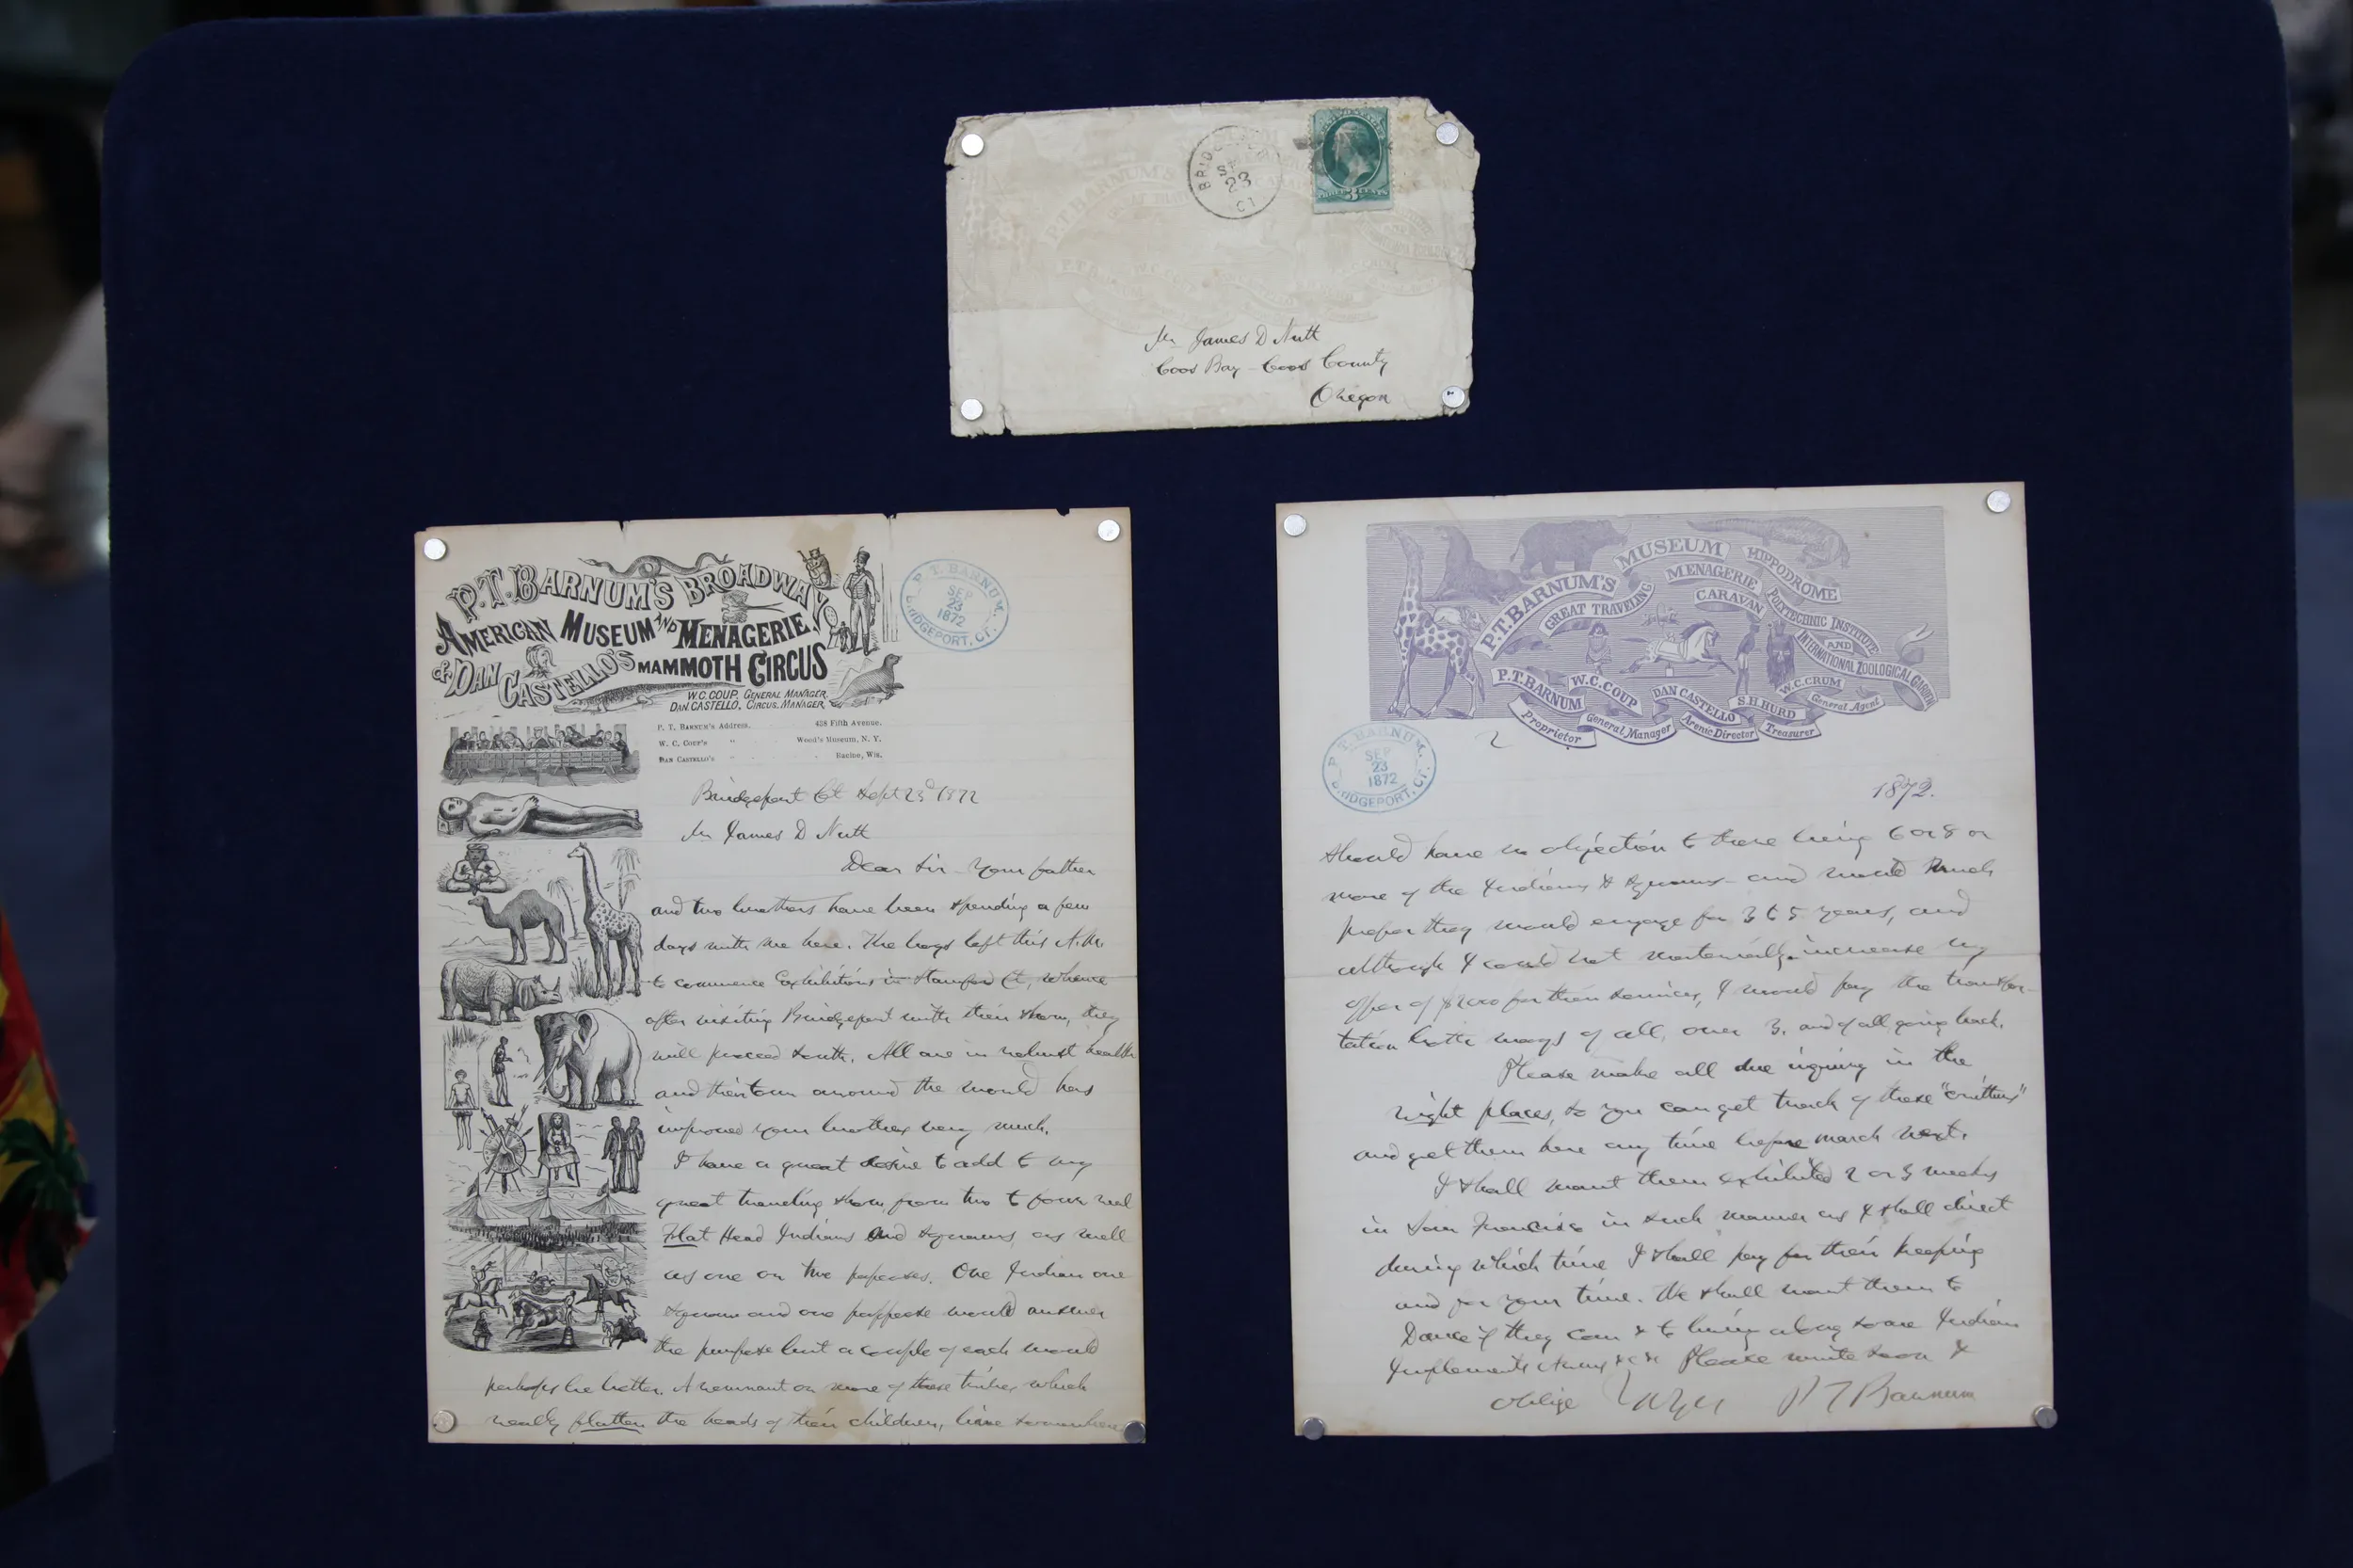 BRIDGEPOR
SEP
23
CT
THREE 3 CENTS
P.T. BARNUM'S
Mr James D Nutt
Coos Bay - Coos County
Oregon
P.T. BARNUM'S BROADWAY
AMERICAN MUSEUM AND MENAGERIE,
& DAN CASTELLO'S MAMMOTH CIRCUS
W.C. COUP, GENERAL MANAGER.
DAN CASTELLO, CIRCUS MANAGER.
P. T. BARNUM.
SEP
23
1872
BRIDGEPORT, CT.
P. T. BARNUM's Address, 438 Fifth Avenue.
W. C. COUP's " Wood's Museum, N. Y.
DAN CASTELLO's " Racine, Wis.
Bridgeport Ct Sept 23d 1872
Mr James D Nutt
Dear Sir - Your father
and two brothers have been spending a few
days with me here. The boys left this A.M.
to commence Exhibitions in Stamford Ct, whence
after visiting Bridgeport with their show, they
will proceed South. All are in robust health
and their tour around the world has
improved your brother very much.
I have a great desire to add to my
great traveling show, from two to four real
Flat Head Indians and squaws, as well
as one or two papooses. One Indian one
squaw and one pappoose would answer
the purpose but a couple of each would
perhaps be better. A remnant or more of these tribes which
really flatten the heads of their children, live somewhere
P.T. BARNUM'S MUSEUM HIPPODROME
GREAT TRAVELING MENAGERIE CARAVAN POLYTECHNIC INSTITUTE
AND
INTERNATIONAL ZOOLOGICAL GARDEN
P.T. BARNUM W.C. COUP DAN CASTELLO S.H. HURD W.C. CRUM
Proprietor General Manager Arenic Director Treasurer General Agent
P. T. BARNUM.
SEP
23
1872
BRIDGEPORT, CT.
2
1872.
should have no objection to there being 6 or 8 or
more of the Indians & squaws - and would much
prefer they would engage for 3 to 5 years, and
although I could not materially increase my
offer of $2000 for their services, I would pay the transpor-
tation both ways of all, over 3, and of all going back.
Please make all due inquiry in the
right places, so you can get track of these "critters"
and get them here any time before March next.
I shall want them exhibited 2 or 3 weeks
in San Francisco in such manner as I shall direct
during which time I shall pay for their keeping
and for your time. We shall want them to
Dance if they can & to bring along some Indian
Implements &c &c Please write soon &
oblige P T Barnum